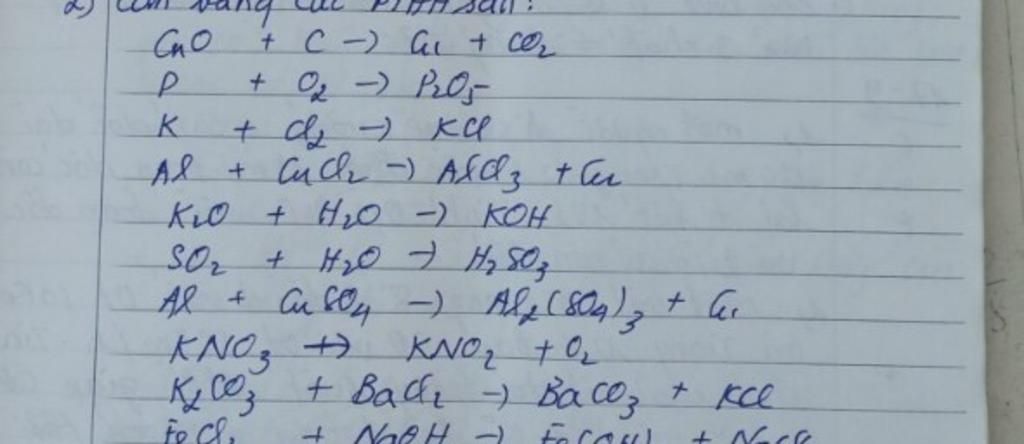 2) Cân bằng các PTHH sau:
CuO + C → Cu + CO2
P + O2 → P2O5
K + Cl2 → KCl
Al + CuCl2 → AlCl3 + Cu
K2O + H2O → KOH
SO2 + H2O → H2SO3
Al + CuSO4 → Al2(SO4)3 + Cu
KNO3 → KNO2 + O2
K2CO3 + BaCl2 → BaCO3 + KCl
+ NaOH →